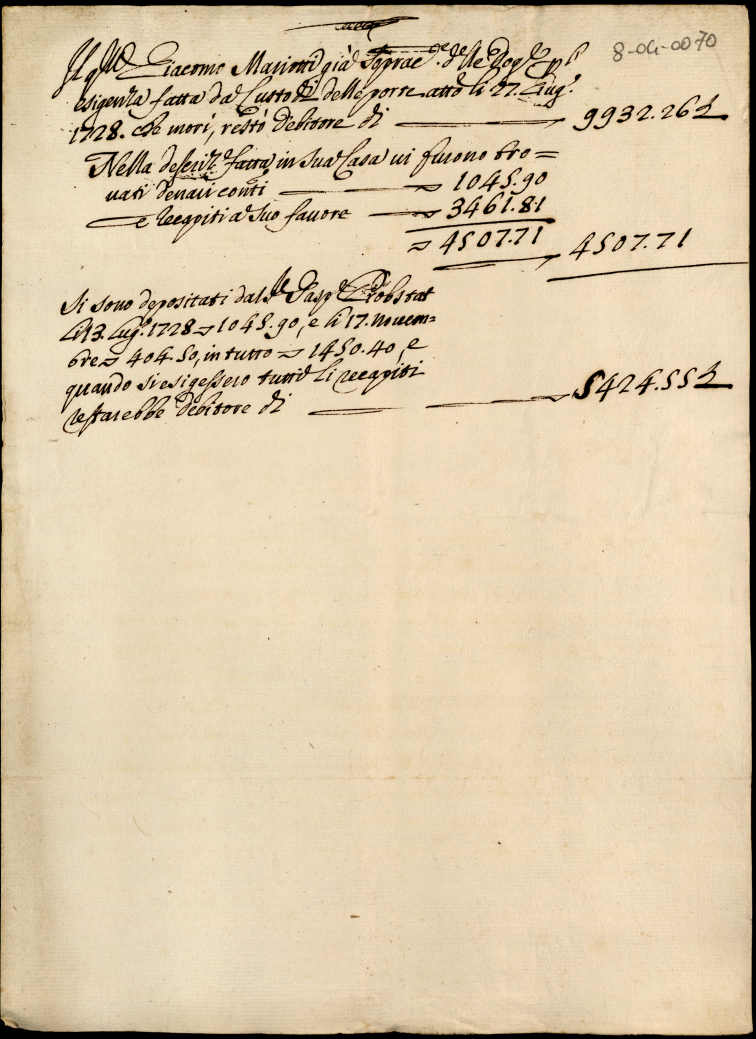 8-04-0070
Il qm Giacomo Mariotti già Soprae.te delle Dog.e p l
esigenza fatta da Custodi delle porte a tto li 27. Giug.o
1728. che morì, restò debitore di — 9932.26½
Nella descriz.e fatta in sua Casa vi furono tro=
vati denari conti — 1045.90
e recapiti a suo favore — 3461.81
4507.71 4507.71
Si sono depositati dal Sr Gasp.e Probstat
li 13. Lug.o 1728 1045.90, e li 17. Novem=
bre 404.50, in tutto 1450.40, e
quando si esigessero tutti li recapiti
restarebbe debitore di — 5424.55½